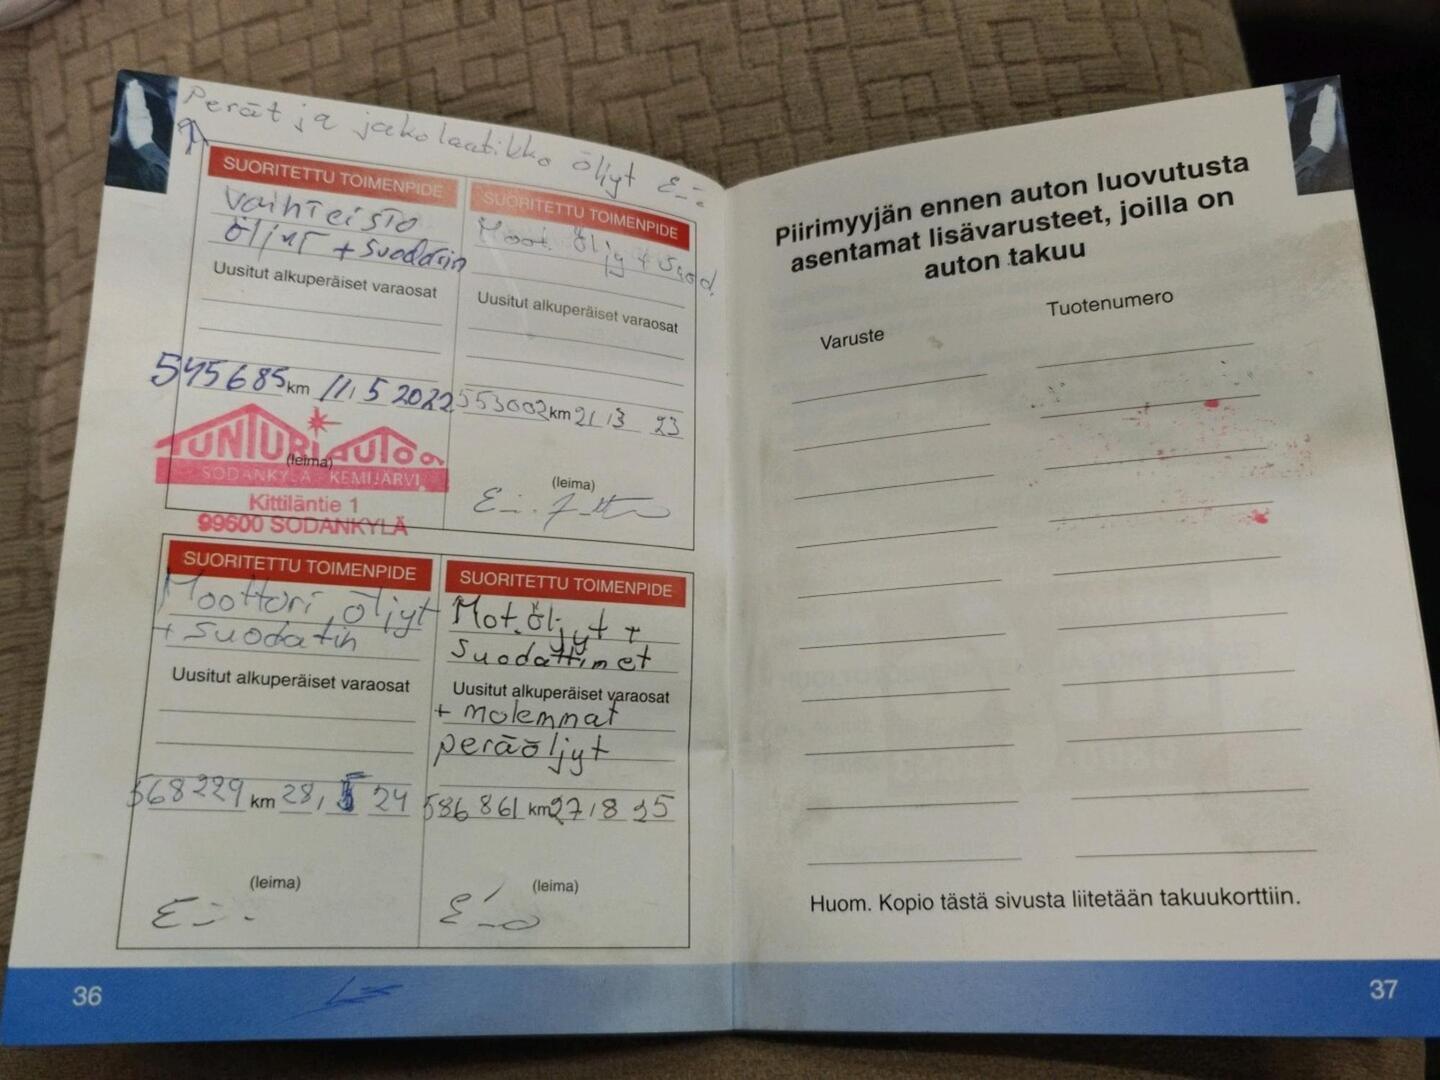 Perät ja jakolaatikko öljyt
SUORITETTU TOIMENPIDE
Vaihteisto
öljyt + suodatin
Uusitut alkuperäiset varaosat
545685 km 11.5 2022
TUNTURIAUTO
(leima)
SODANKYLÄ - KEMIJÄRVI
Kittiläntie 1
99600 SODANKYLÄ
SUORITETTU TOIMENPIDE
Moot. öljy + suod.
Uusitut alkuperäiset varaosat
553002 km 21 13 23
(leima)
SUORITETTU TOIMENPIDE
Moottori öljyt
+ suodatin
Uusitut alkuperäiset varaosat
568229 km 28, 5 24
(leima)
SUORITETTU TOIMENPIDE
Mot. öljyt +
suodattimet
Uusitut alkuperäiset varaosat
+ molemmat
peräöljyt
586 861 km 27 18 25
(leima)
36
Piirimyyjän ennen auton luovutusta
asentamat lisävarusteet, joilla on
auton takuu
Varuste Tuotenumero
Huom. Kopio tästä sivusta liitetään takuukorttiin.
37